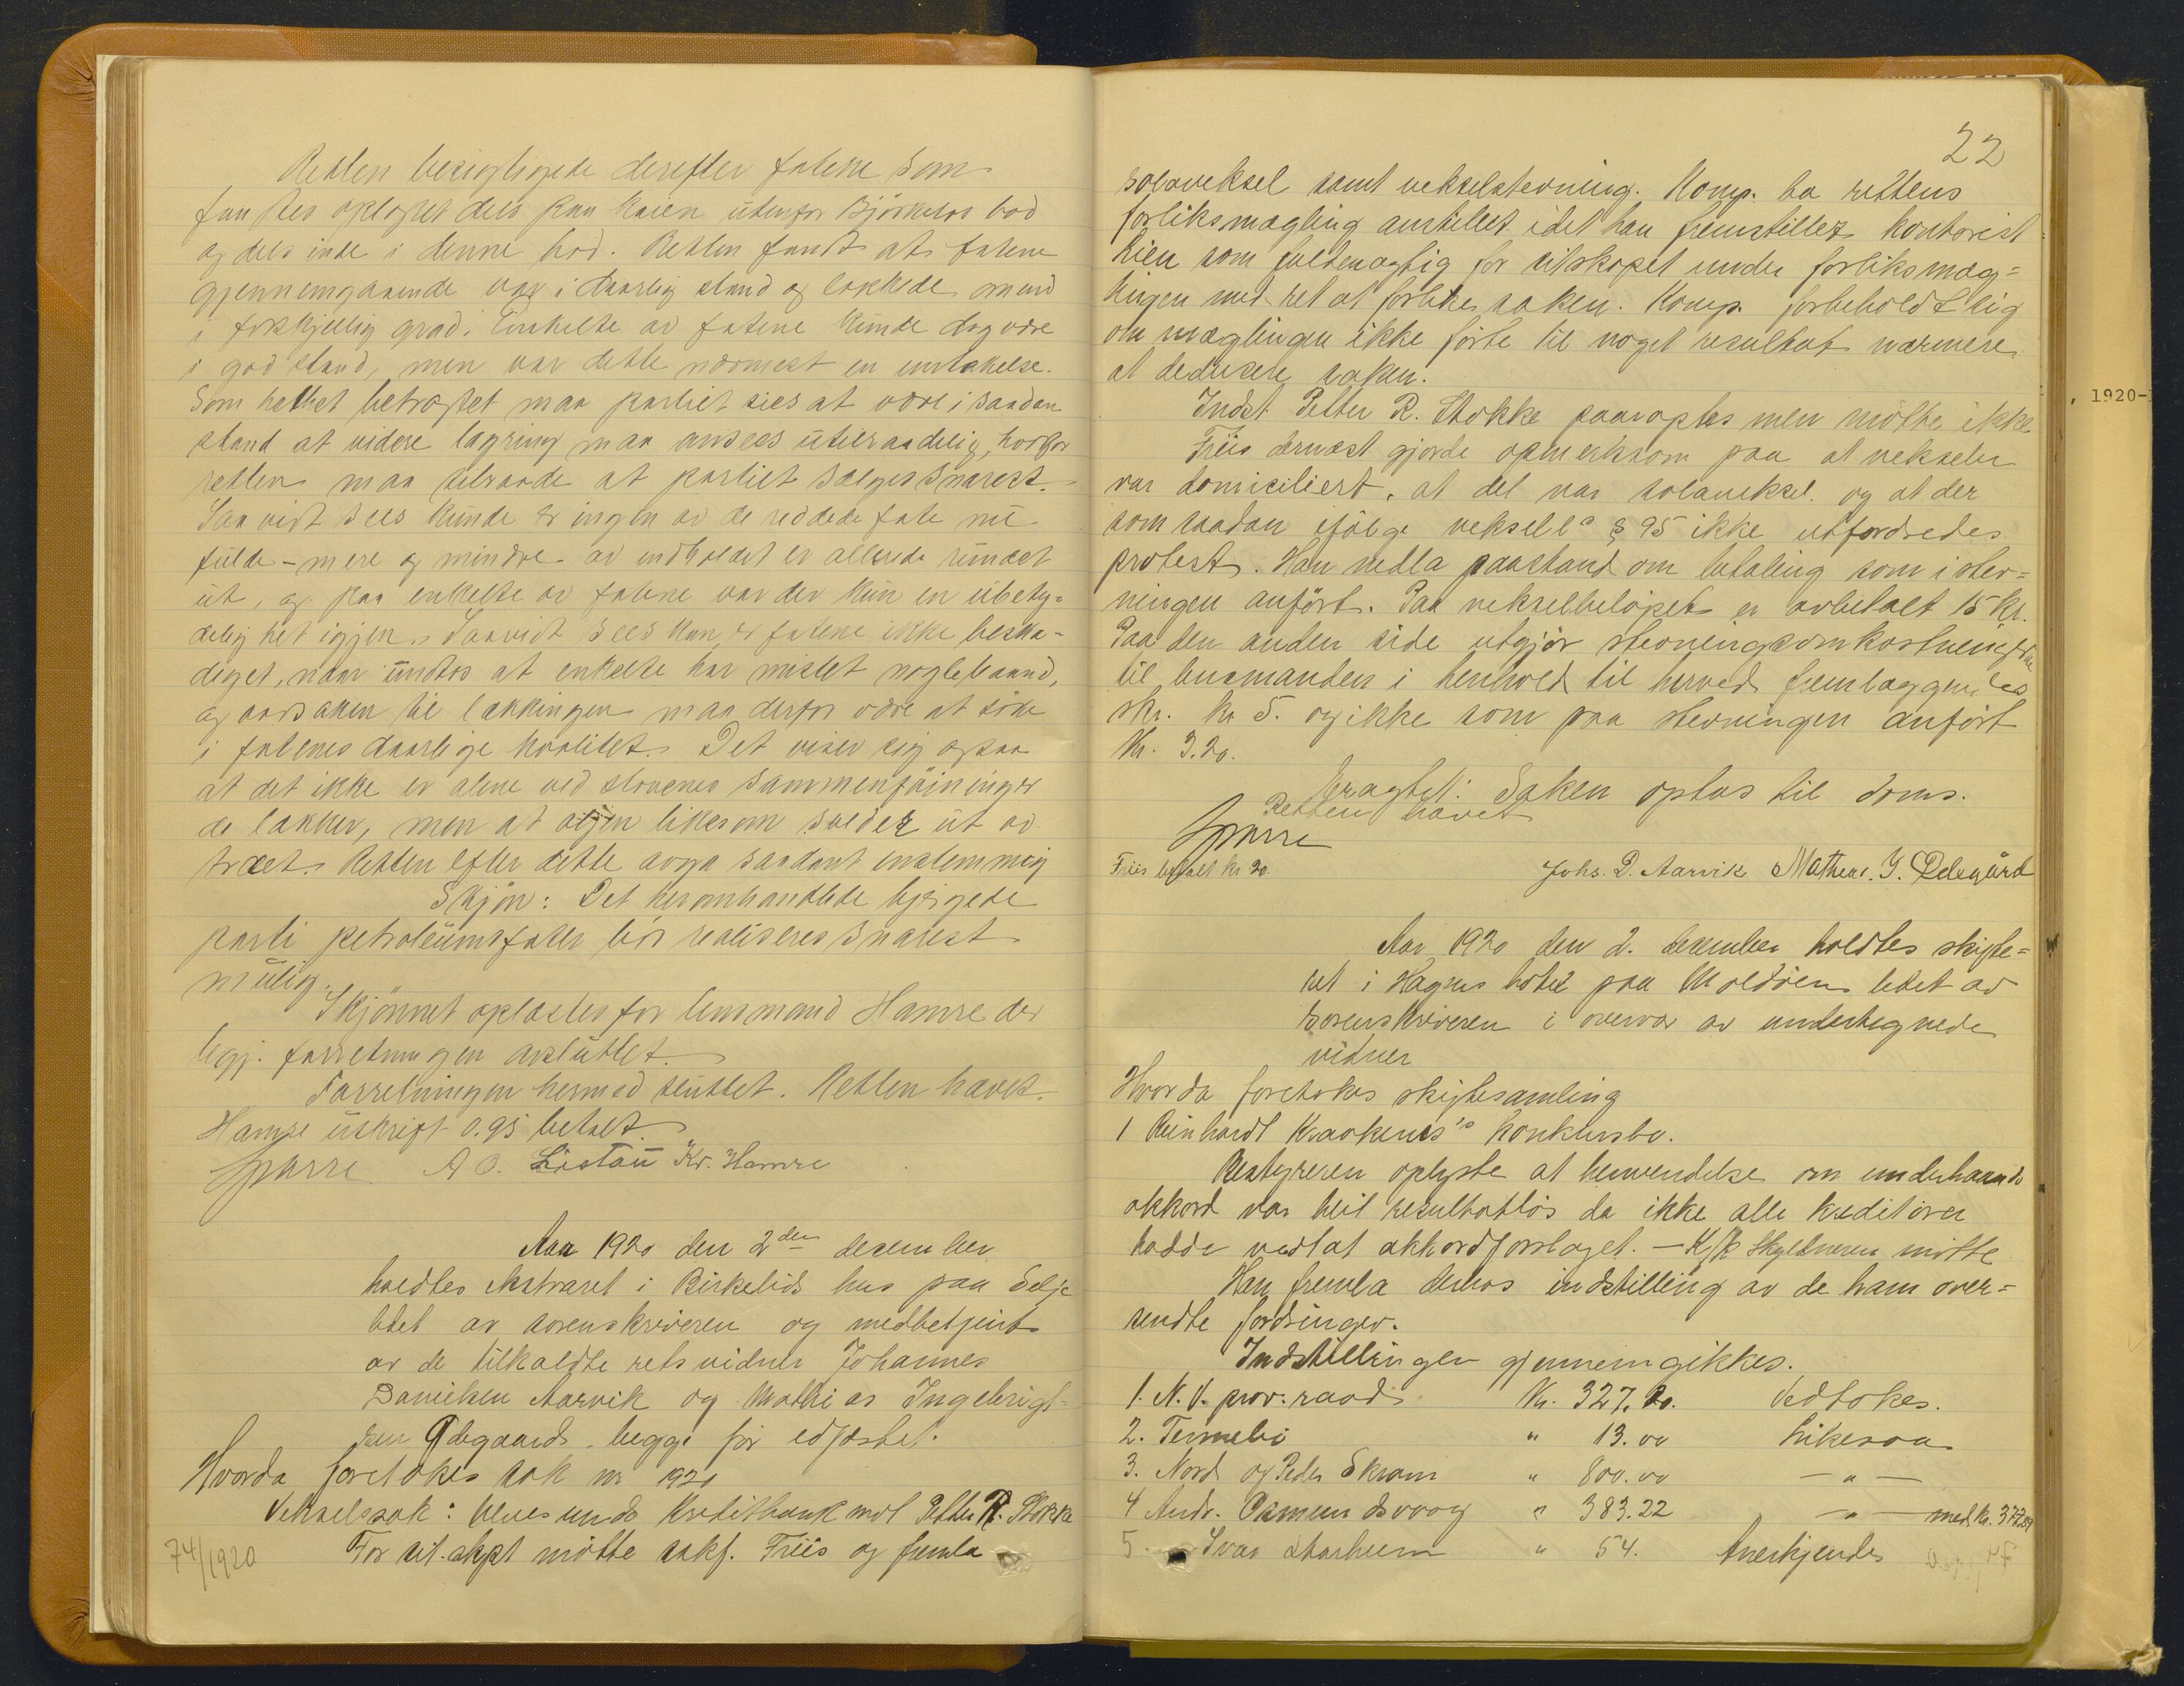 Retten besigtigede derefter fatene som
fandtes oplagret dels paa kaien utenfor Björkelos bod
og dels inde i denne bod. Retten fandt at fatene
gjennemgaaende var i daarlig stand og lækkede omend
i forskjellig grad. Enkelte av fatene kunde dog være
i god stand, men var dette nærmest en undtakelse.
Som helhet betragtet maa partiet sies at være i saadan
stand at videre lagring maa ansees utilraadelig, hvorfor
retten maa tilraade at partiet sælges snarest.
Saavidt sees kunde er ingen av de reddede fate nu
fulde - mere og mindre av indholdet er allerede rundet
ut, og paa enkelte av fatene var der kun en ubety=
delighet igjen. Saavidt sees kan, er fatene ikke beska-
diget, naar undtas at enkelte har mistet nogle baand,
og aarsaken til lækkingen maa derfor være at söke
i fatenes daarlige kvalitet. Det viser sig ogsaa
at det ikke er alene ved stavenes sammenföininger
de lækker, men at oljen likesom sveder ut av
træet. Retten efter dette avga saadant enstemmig
Skjön: Det heromhandlede bergede
parti petroleumsfater bör realiseres snarest
mulig.
Skjönnet oplæstes for lensmand Hamre der
begj. forretningen avsluttet.
Forretningen hermed sluttet. Retten hævet.
Hamre utskrift 0.95 betalt
Sparre A O. Listau Kr. Hamre
Aar 1920 den 2den december
holdtes ekstraret i Birkelids hus paa Selje
ledet av sorenskriveren og medbetjent
av de tilkaldte retsvidner Johannes
Danielsen Aarvik og Mathias Ingebrigt-
sen Ödegaard, begge för edfæstet.
Hvorda foretokes sak nr 1920
Vekselsak: Ulvesunds Kreditbank mot Petter R. Stokke
74/1920
For cit. akpt mötte sakf. Friis og fremla
22
solaveksel samt vekselstevning. Komp. ba rettens
forliksmægling anstillet idet han fremstillet kontorist
Lien som fuldmægtig for selskapet under forliksmæg=
lingen med ret at forlike saken. Komp. forbeholdt sig
om mæglingen ikke förte til noget resultat nærmere
at deducere saken.
Indst. Petter R. Stokke paaroptes men mötte ikke
Friis dernæst gjorde opmerksom paa at vekselen
var domiciliert, at det var solaveksel og at der
som saadan ifölge veksell° § 95 ikke utfordredes
protest. Han nedla paastand om betaling som i stev=
ningen anfört. Paa vekselbelöpet er avbetalt 15 kr.
Paa den anden side utgjör stevningsomkostningene
til lensmanden i henhold til herved fremlæggendes
skr. kr 5. og ikke som paa stevningen anfört
Kr. 3.20.
Eragtet: Saken optas til doms.
Retten hævet
Sparre
Friis betalt kr 20. Johs. D. Aarvik Mathias. I. Ödegård
Aar 1920 den 2. december holdtes skifte=
ret i Hagens hotel paa Moldöen ledet av
sorenskriveren i overvær av undertegnede
vidner
Hvorda foretokes skiftesamling
1 Reinhardt Kraakenes's konkursbo.
Bestyreren oplyste at henvendelse om underhaands
akkord var blit resultatlös da ikke alle kreditorer
hadde vedtat akkordforslaget. — K/k skyldneren mötte
Han fremla derhos indstilling av de ham over=
sendte fordringer.
Indstillingen gjennemgikkes.
1. N. V. prov: raad Kr. 327.20. Vedtokes.
2. " 13.00 Likesaa
3. Nord og Peder Skram " 800.00 — " —
4 Andr. Osmundsvaag " 383.22 — " — med Kr. 377.29
5. Ivar Starheim " 54. Anerkjendes
, 1920-